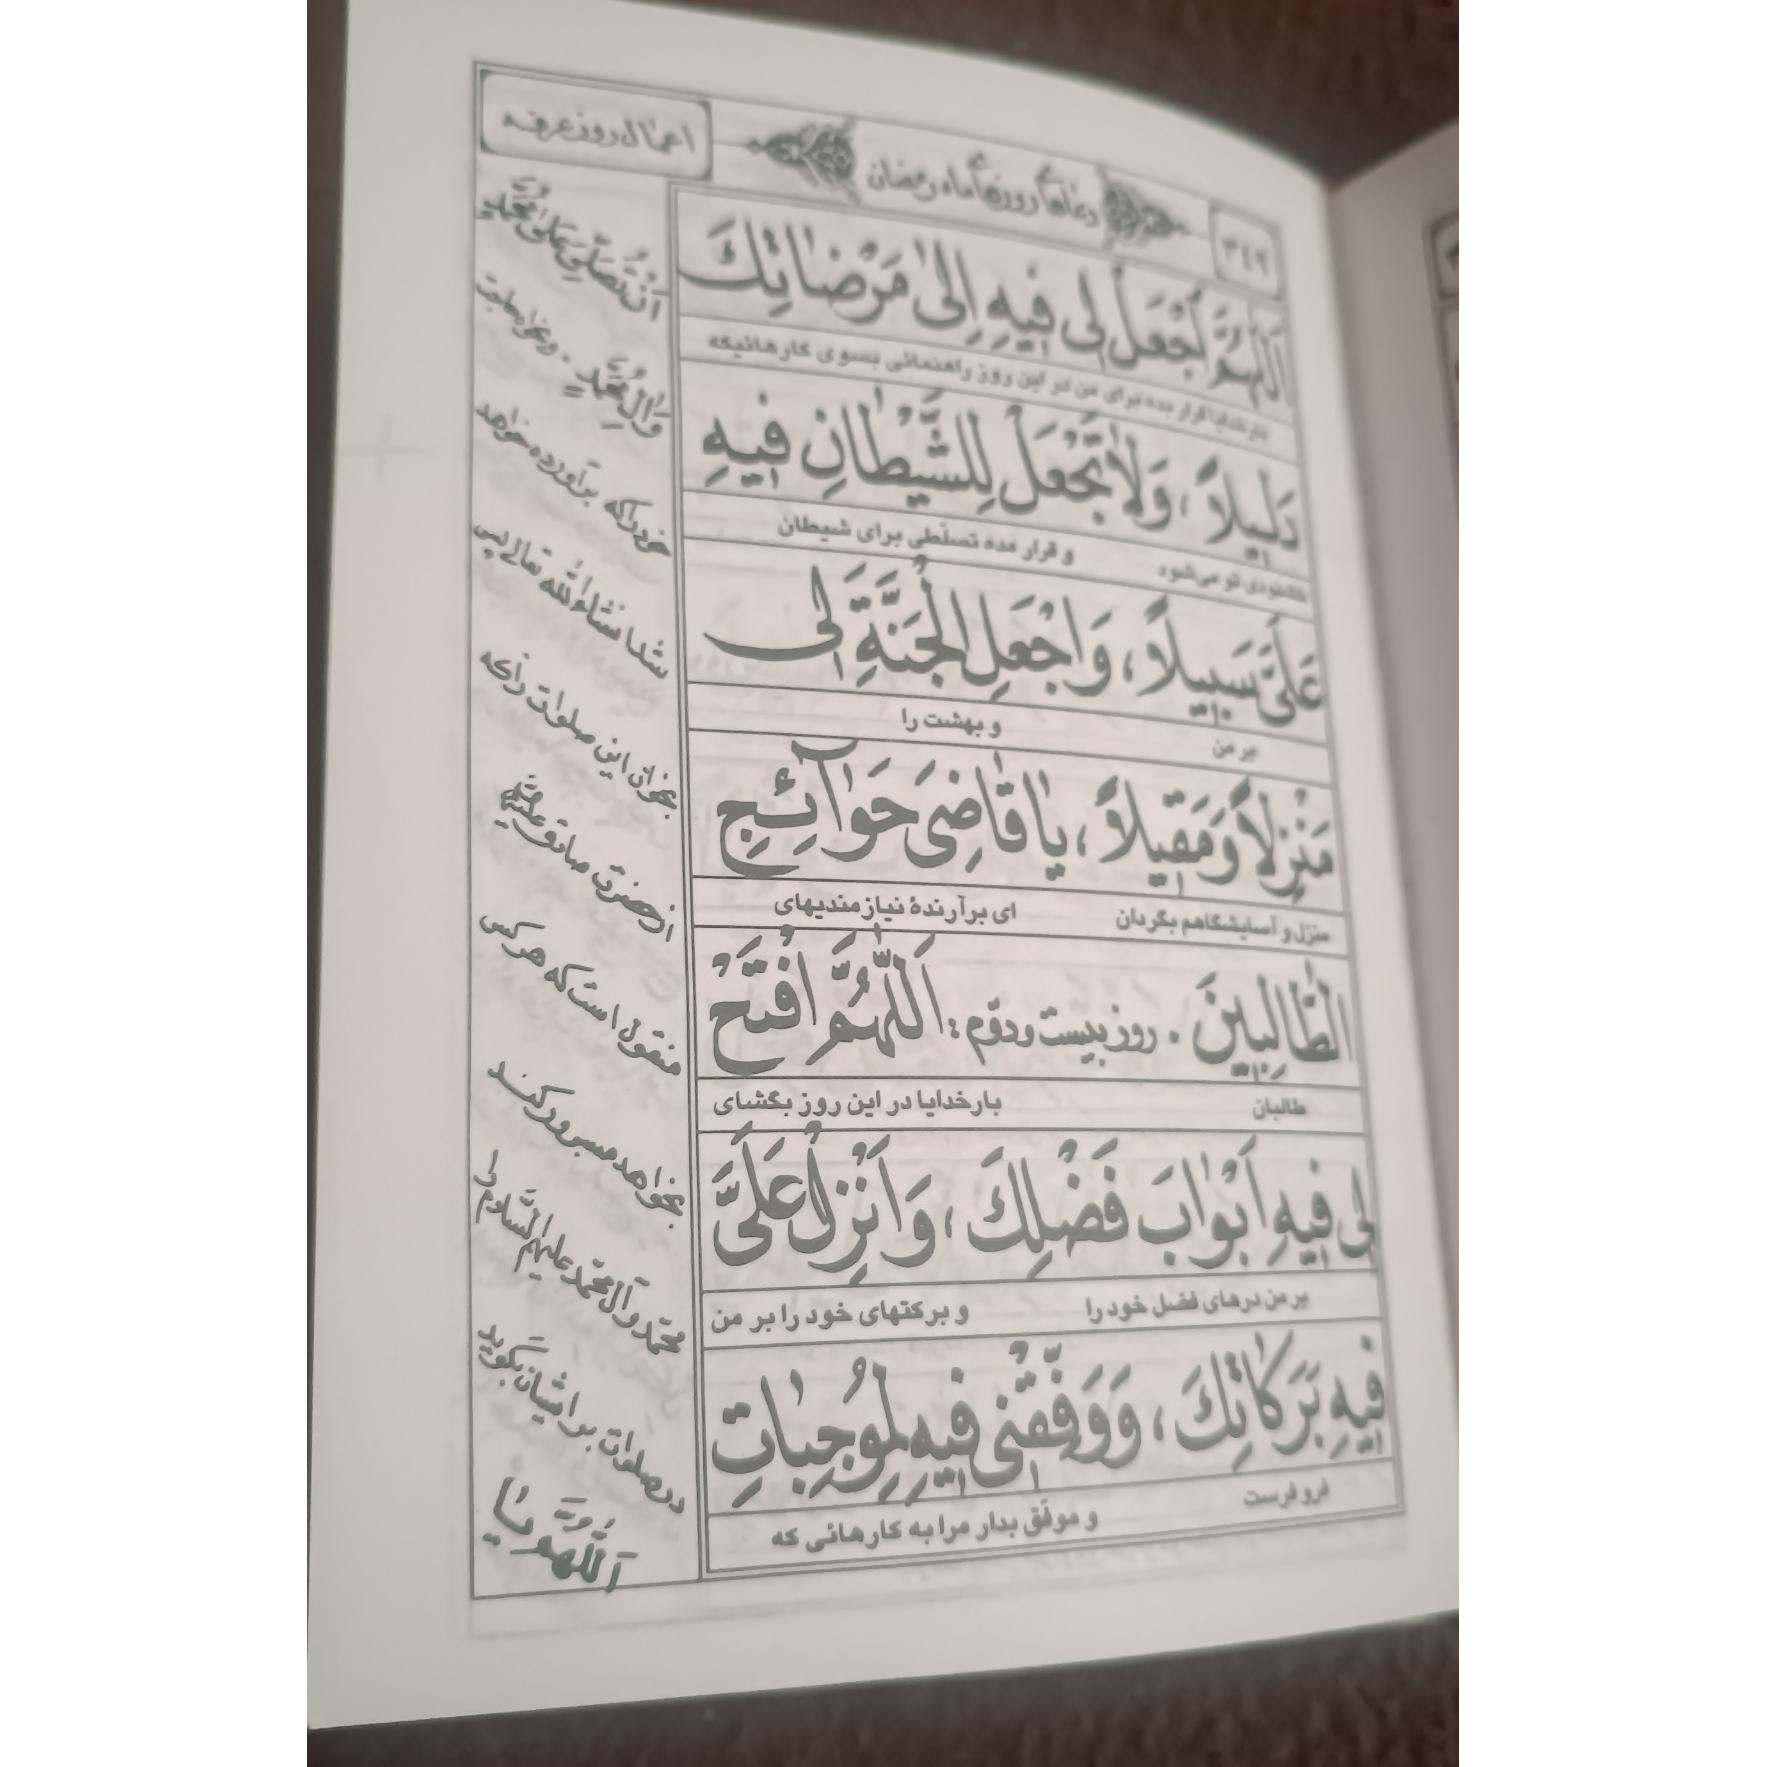 ٣٤٩
دعاهای روزهای ماه رمضان
اعمال روز عرفه
اَللّٰهُمَّ اجْعَلْ لی فیهِ اِلیٰ مَرْضاتِكَ
بارخدایا قرار مده برای من در این روز راهنمائی بسوی کارهائیکه
دَلیلاً، وَلاٰ تَجْعَلْ لِلشَّیْطٰانِ فیهِ
خشنودی تو می‌شود و قرار مده تسلّطی برای شیطان
عَلَیَّ سَبیلاً، وَاجْعَلِ الْجَنَّةَ لی
بر من و بهشت را
مَنْزِلاً وَمَقیلاً، یٰا قٰاضِیَ حَوٰآئِجِ
منزل و آسایشگاهم بگردان ای برآرندهٔ نیازمندیهای
الطّٰالِبینَ . روز بیست و دوّم : اَللّٰهُمَّ افْتَحْ
طالبان بارخدایا در این روز بگشای
لی فیهِ اَبْوٰابَ فَضْلِكَ، وَاَنْزِلْ عَلَیَّ
بر من درهای فضل خود را و برکتهای خود را بر من
فیهِ بَرَکٰاتِكَ، وَوَفِّقْنی فیهِ لِمُوجِبٰاتِ
فرو فرست و موفّق بدار مرا به کارهائی که
اَنْ تُصَلِّیَ عَلیٰ مُحَمَّدٍ
وَاٰلِ مُحَمَّدٍ . و بخواه حاجت
خود را که برآورده خواهد
شد انشاءالله تعالی پس
بخوان این صلوات را که
از حضرت صادق علیه
منقول است که هر کس
بخواهد مسرور کند
محمّد و آل محمّد علیهم السّلام را
در صلوات بر ایشان بگوید
اَللّٰهُمَّ یٰا